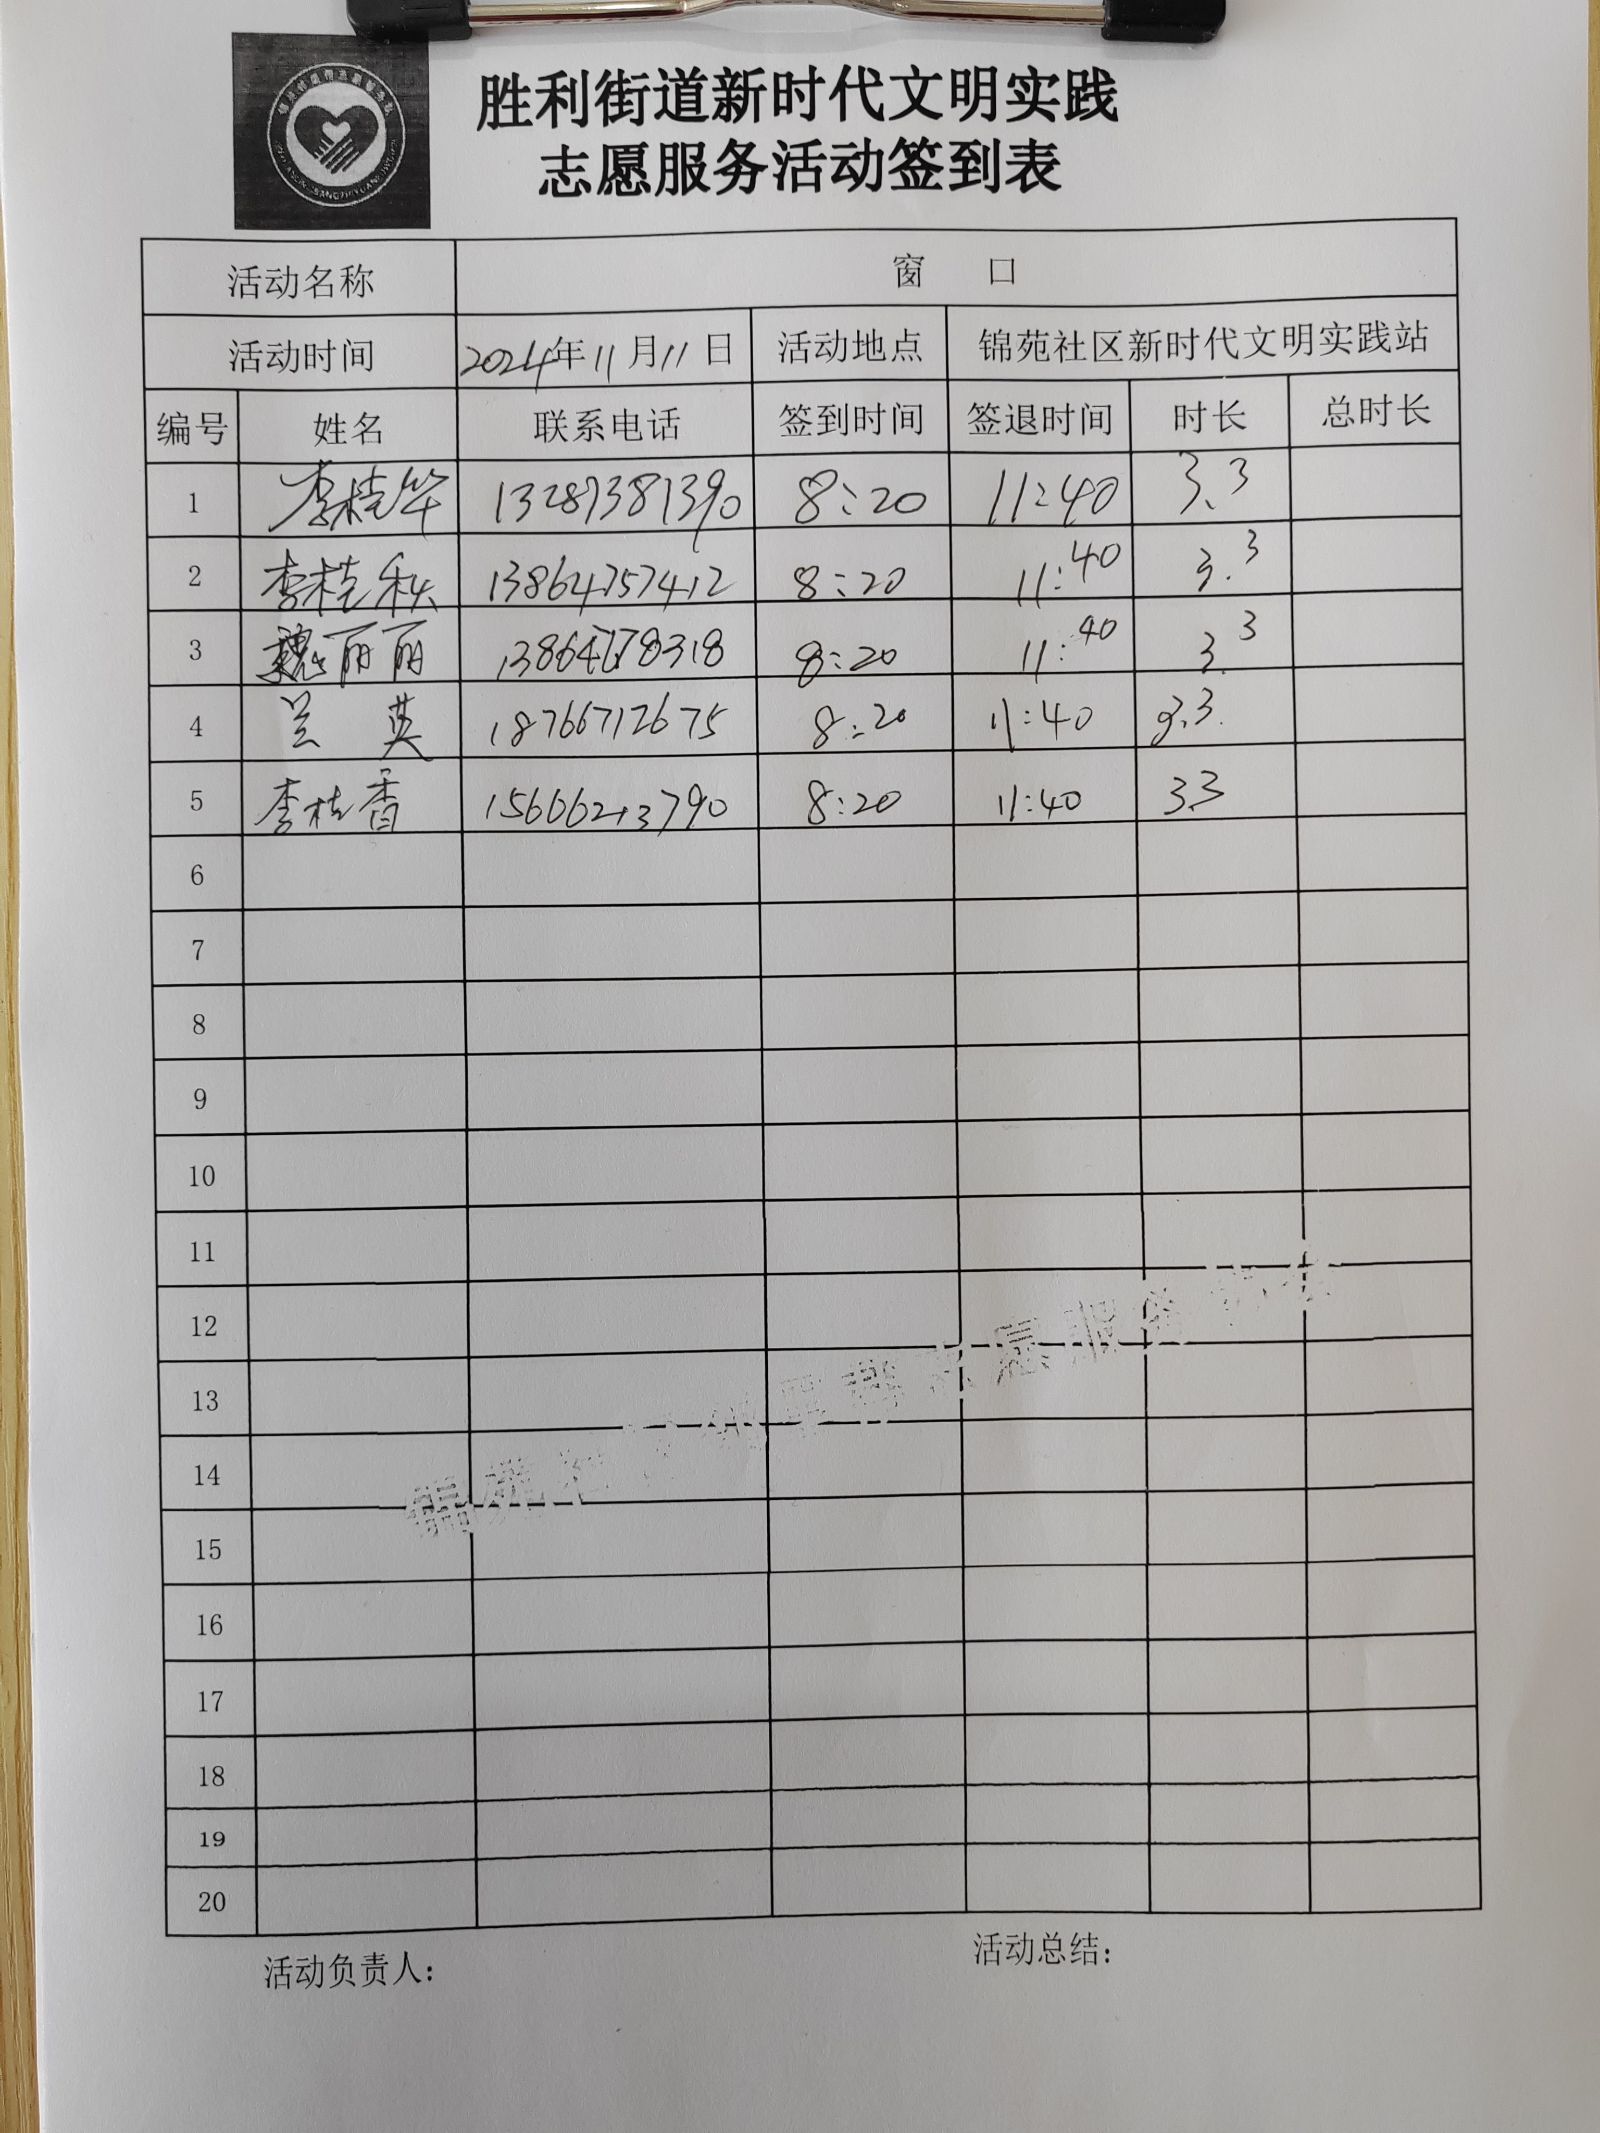 胜利街道新时代文明实践
志愿服务活动签到表
活动名称 窗 口
活动时间 2024年11月11日 活动地点 锦苑社区新时代文明实践站
编号 姓名 联系电话 签到时间 签退时间 时长 总时长
1 李桂华 13287381390 8:20 11:40 3.3
2 李桂秋 13864757412 8:20 11:40 3.3
3 魏丽丽 13864778318 8:20 11:40 3.3
4 兰 英 18766712675 8:20 11:40 3.3
5 李桂香 15666213790 8:20 11:40 3.3
6
7
8
9
10
11
12
13
14
15
16
17
18
19
20
锦苑社 志愿服务
活动负责人： 活动总结：